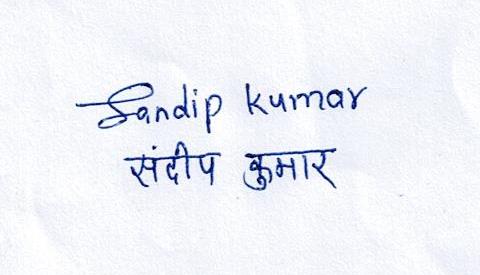 Sandip kumar
संदीप कुमार